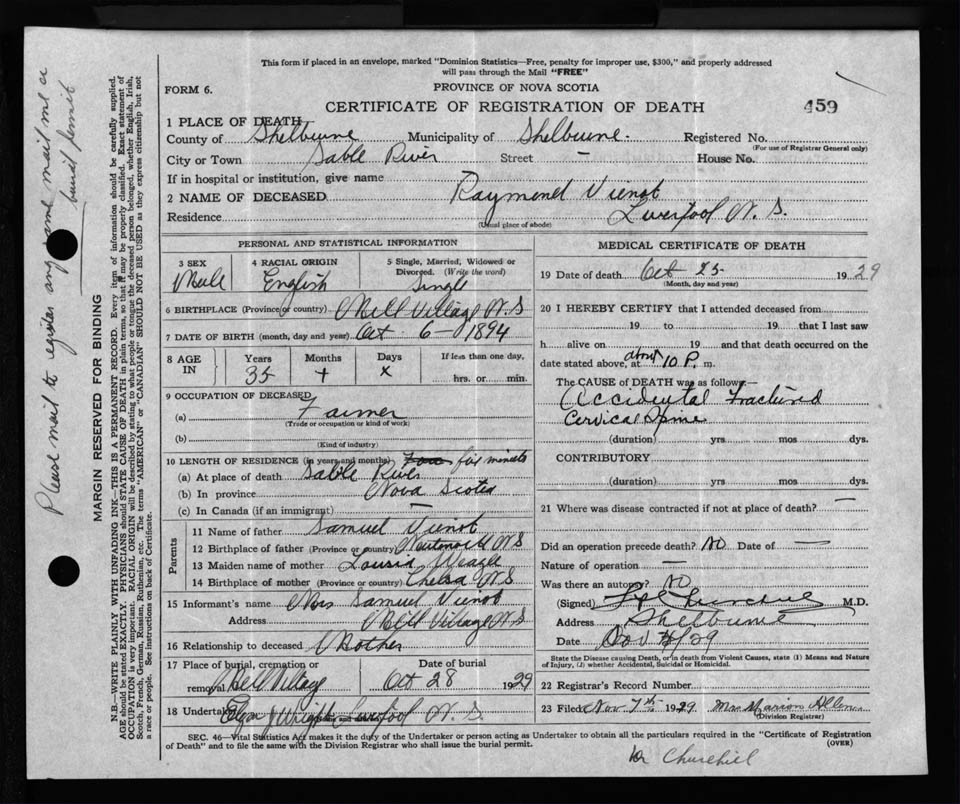 This form if placed in an envelope, marked "Dominion Statistics—Free, penalty for improper use, $300," and properly addressed
will pass through the Mail "FREE"
FORM 6.
PROVINCE OF NOVA SCOTIA
CERTIFICATE OF REGISTRATION OF DEATH
459
1 PLACE OF DEATH
County of Shelburne Municipality of Shelburne. Registered No.
(For use of Registrar General only)
City or Town Sable River Street – House No.
If in hospital or institution, give name
2 NAME OF DECEASED Raymond Vienot
Residence Liverpool N. S.
(Usual place of abode)
PERSONAL AND STATISTICAL INFORMATION
3 SEX 4 RACIAL ORIGIN 5 Single, Married, Widowed or
Divorced. (Write the word)
Male English Single
6 BIRTHPLACE (Province or country) Mill Village N.S
7 DATE OF BIRTH (month, day and year) Oct 6 - 1894
8 AGE IN Years Months Days If less than one day,
35 + x hrs. or min.
9 OCCUPATION OF DECEASED
(a) Farmer
(Trade or occupation or kind of work)
(b)
(Kind of industry)
10 LENGTH OF RESIDENCE (in years and months) few minets
(a) At place of death Sable River
(b) In province Nova Scotia
(c) In Canada (if an immigrant) –
Parents
11 Name of father Samuel Vienot
12 Birthplace of father (Province or country) N S
13 Maiden name of mother
14 Birthplace of mother (Province or country) Chelsa N S
15 Informant's name Mrs Samuel Vienot
Address Mill Village N S
16 Relationship to deceased Mother
17 Place of burial, cremation or Date of burial
removal Mill Village Oct 28 1929
18 Undertaker Wright Liverpool N. S.
MEDICAL CERTIFICATE OF DEATH
19 Date of death Oct 25 1929
(Month, day and year)
20 I HEREBY CERTIFY that I attended deceased from
19 to 19 that I last saw
h alive on 19 and that death occurred on the
date stated above, at about 10 P. m.
The CAUSE of DEATH was as follows:—
Accidental Fractured
Cervical Spine
(duration) yrs mos dys.
CONTRIBUTORY
(duration) yrs mos dys.
21 Where was disease contracted if not at place of death? –
Did an operation precede death? No Date of –
Nature of operation –
Was there an autopsy? No
(Signed) Churchill M.D.
Address Shelburne
Date Nov 29
State the Disease causing Death, or in death from Violent Causes, state (1) Means and Nature
of Injury, (2) whether Accidental, Suicidal or Homicidal.
22 Registrar's Record Number
23 Filed Nov 7th 1929 Mrs Marion Allen
(Division Registrar)
SEC. 46—Vital Statistics Act makes it the duty of the Undertaker or person acting as Undertaker to obtain all the particulars required in the "Certificate of Registration
of Death" and to file the same with the Division Registrar who shall issue the burial permit.
(OVER)
Dr Churchill
Please mail to register any same mail me a
burial permit
MARGIN RESERVED FOR BINDING
N.B—WRITE PLAINLY WITH UNFADING INK—THIS IS A PERMANENT RECORD. Every item of information should be carefully supplied.
AGE should be stated EXACTLY. PHYSICIANS should STATE CAUSE OF DEATH in plain terms, so that it may be properly classified. Exact statement of
OCCUPATION is very important. RACIAL ORIGIN will be described by stating to what people or tongue the deceased person belonged, whether English, Irish,
Scotch, French, German, Russian, Ruthenian, etc. The terms "AMERICAN" or "CANADIAN" SHOULD NOT BE USED as they express citizenship but not
a race or people. See instructions on back of Certificate.